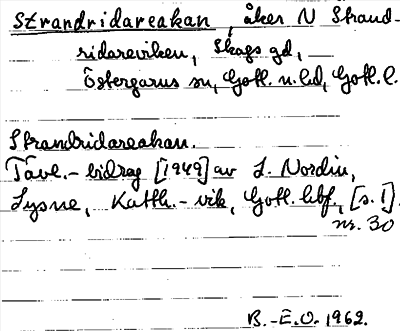 Strandridareåkan, åker N Strand-
ridareviken, Skags gd,
Östergarns sn, Gotl. n. hd, Gotl. l.
Strandridareakan.
Tävl.-bidrag [1949] av L. Nordin,
Lysne, Katth.-vik, Gotl. hbf, [s. 1].
nr. 30
B.-E.O. 1962.